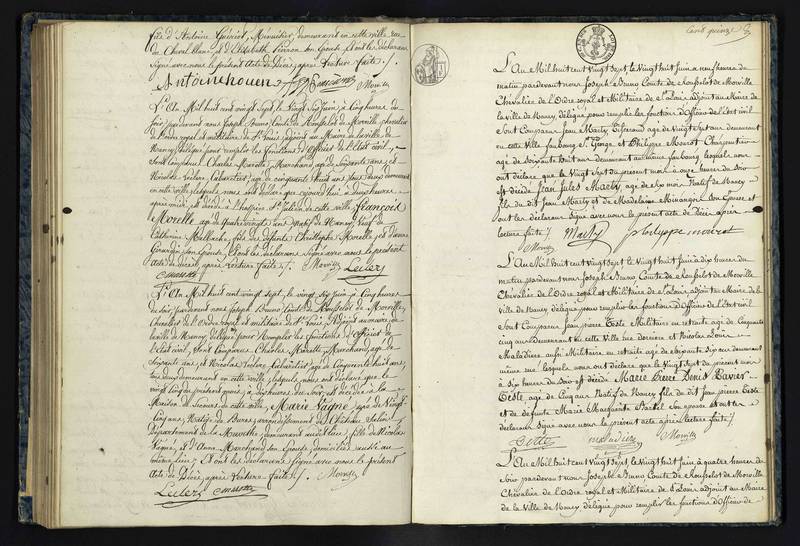 fils d'Antoine Guérin, Menuisier, demeurant en cette ville rue
du Cheval blanc, et d'Elisabeth son Epouse. Et ont les déclarans
Signé avec nous le présent acte de Décès, après Lecture faite ./.
Antoine houen
L'An Mil huit cent vingt Sept le Vingt Six Juin, à Cinq heures du
Soir, pardevant nous Joseph Bruno Comte de Rousselot de Morville, chevalier
de l'ordre royal et militaire de St Louis, adjoint au Maire de la ville de
Nancy, délégué pour remplir les fonctions d'Officier de l'Etat civil,
Sont Comparus Charles Marotte, Marchand, agé de Soixante ans, et
Nicolas Leclerc, agé de cinquante huit ans, tous deux demeurant
en cette ville, lesquels nous ont déclaré que cejourd'hui à deux heures
après midi, est décédé à l'hospice St Julien de cette ville, François
Morelle, agé de Quatre vingts ans, Natif de Nancy, Veuf de
Catherine, fils des défunts Christophe Morelle, et d'anne
Girardin son Epouse. Et ont les déclarans Signé avec nous le présent
acte de décès, après Lecture faite ./.
Leclerc
L'An Mil huit cent vingt Sept, le vingt Six Juin, à Cinq heures
du Soir, pardevant nous Joseph Bruno Comte de Rousselot de Morville,
Chevalier de l'ordre royal et militaire de St Louis, Adjoint au maire de
la ville de Nancy, délégué pour Remplir les fonctions d'officier de
l'Etat civil, Sont Comparus Charles Marotte, Marchand, agé de
Soixante ans, et Nicolas Leclerc, agé de Cinquante huit ans,
tous deux demeurant en cette ville, lesquels nous ont déclaré que le
vingt Cinq du présent mois, à dix heures du Soir, est décédée à la
Maison de Secours de cette ville, Marie Vagné, agée de Vingt
Cinq ans, Native de Bures, arrondissement de Château Salins,
Département de la Meurthe, demeurant audit lieu, fille de Nicolas
Vagné, et d'Anne Marchand son Epouse, domiciliés aussi au
même lieu. Et ont les déclarans Signé avec nous le présent
acte de Décès, après Lecture faite ./.
Leclerc
Cent quinze
L'An Mil huit cent Vingt Sept, le Vingt huit Juin à neuf heures du
matin pardevant nous Joseph Bruno Comte de Rousselot de Morville
Chevalier de l'Ordre royal et Militaire de St Louis adjoint au Maire de
la ville de Nancy, délégué pour remplir les fonctions d'Officier de l'Etat civil
Sont Comparus Jean Marly agé de Vingt Sept ans demeurant
en cette ville faubourg St George et Philippe Mourot Charpentier
agé de Soixante huit ans demeurant au même faubourg lesquels nous
ont déclaré que le Vingt Sept du présent mois à onze heures du Soir
est décédé Jean Jules Marly, agé de Six mois Natif de Nancy
fils du dit Jean Marly et de Madelaine Mainangon Son Epouse. Et
ont les déclarans Signé avec nous le présent acte de Décès après
lecture faite ./. Marly philippe mourot
L'An Mil huit cent Vingt Sept, le Vingt huit Juin à dix heures du
matin pardevant nous Joseph Bruno Comte de Rousselot de Morville
Chevalier de l'Ordre royal et Militaire de St Louis adjoint au Maire de la
Ville de Nancy, délégué pour remplir les fonctions d'Officier de l'Etat civil
Sont Comparus Jean pierre Teste Militaire en retraite agé de Cinquante
cinq ans demeurant en cette Ville rue derriere et Nicolas Louis
Maladiere aussi Militaire en retraite agé de Soixante Six ans demeurant
même rue, lesquels nous ont déclaré que le Vingt Sept du présent mois
à Six heures du Soir est décédé Marie Pierre Denis Xavier
Teste, agé de Cinq ans, Natif de Nancy fils du dit Jean pierre Teste
et de défunte Marie Marguerite Bartel Son Epouse. Et ont les
déclarans Signé avec nous le présent acte après lecture faite ./.
L'An Mil huit cent Vingt Sept, le Vingt huit Juin à quatre heures du
Soir pardevant nous Joseph Bruno Comte de Rousselot de Morville
Chevalier de l'Ordre royal et Militaire de St Louis adjoint au Maire
de la Ville de Nancy, délégué pour remplir les fonctions d'Officier de